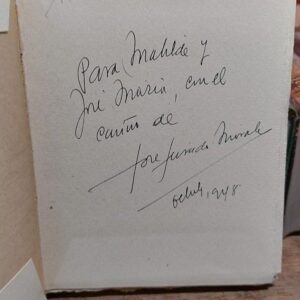 Para Matilde y
José María, con el
cariño de
José Jurado Morales
octubre, 1948